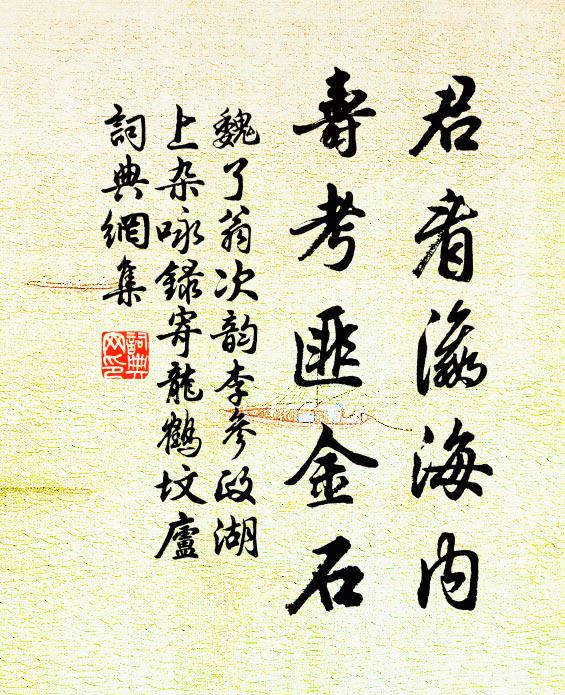 君看瀛海内
壽考匪金石
魏了翁次韵李參政湖
上杂咏録寄龍鶴坟廬
詞典網集
詞典
网印